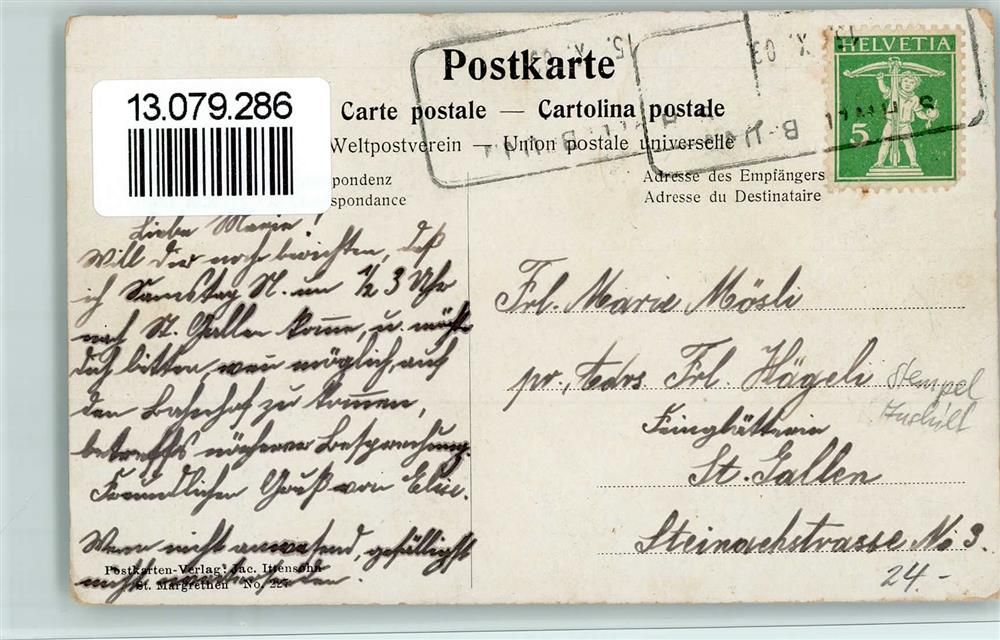 13.079.286
Postkarte
Carte postale — Cartolina postale
Weltpostverein — Union postale universelle
pondenz
spondance
Adresse des Empfängers
Adresse du Destinataire
HELVETIA
5
15. X. 09
X. 09
Liebe Marie!
Will dir noch berichten, daß
ich Samstag N. um 1/2 3 Uhr
nach St. Gallen komme, u. möchte
dich bitten, wen möglich, auf
den Bahnhof zu kommen,
betreffs näherer Besprechung.
Freundlichen Gruß von
Wenn nicht anwesend, gefälligst
nicht
Frl. Marie Mösli
pr. Adrs. Frl. Hägeli
Feinglätterin
St. Gallen
Steinachstrasse No 3.
Stempel
24.-
Postkarten-Verlag: Jac. Ittensohn
St. Margrethen No.